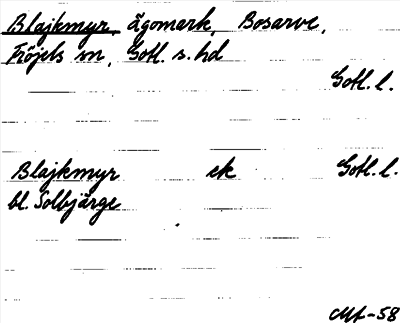 Blajkmyr, ägomark, Bosarve,
Fröjels sn, Gotl. s. hd
Gotl. l.
Blajkmyr ek Gotl. l.
bl. Solbjärge